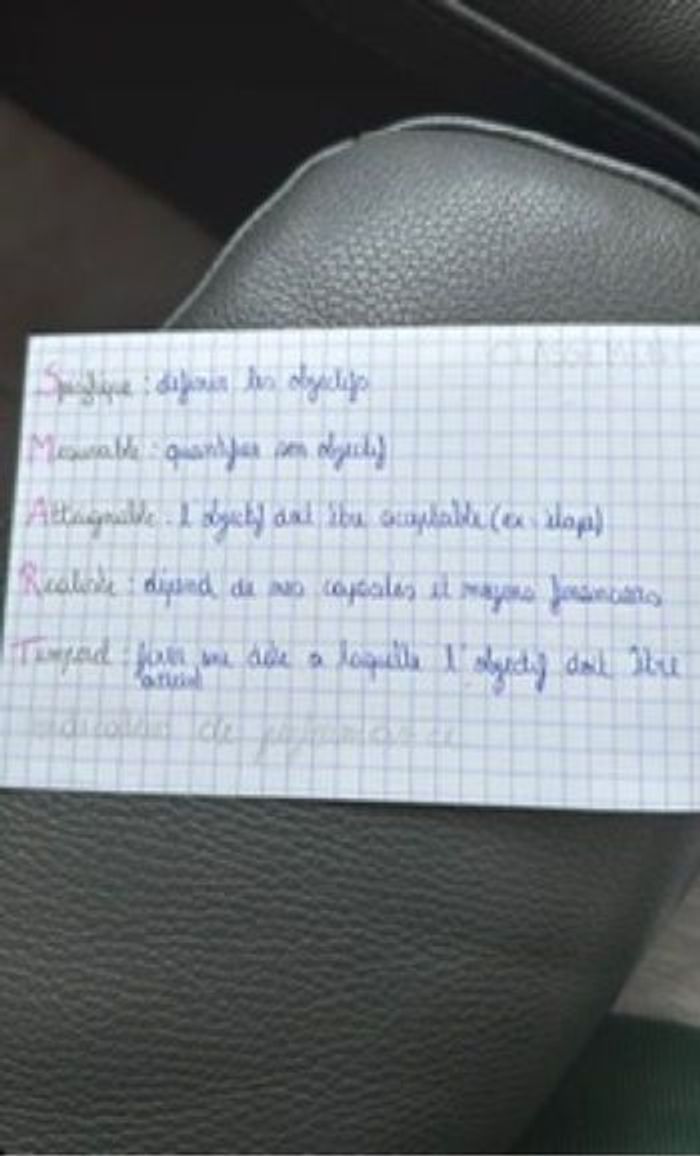 CLASSEMENT
Spécifique : définir les objectifs
Mesurable : quantifier son objectif
Atteignable : l'objectif doit être acceptable (ex : étape)
Réaliste : dépend de nos capacités et moyens financiers
Temporel : fixer une date à laquelle l'objectif doit être
atteint
indicateur de performance